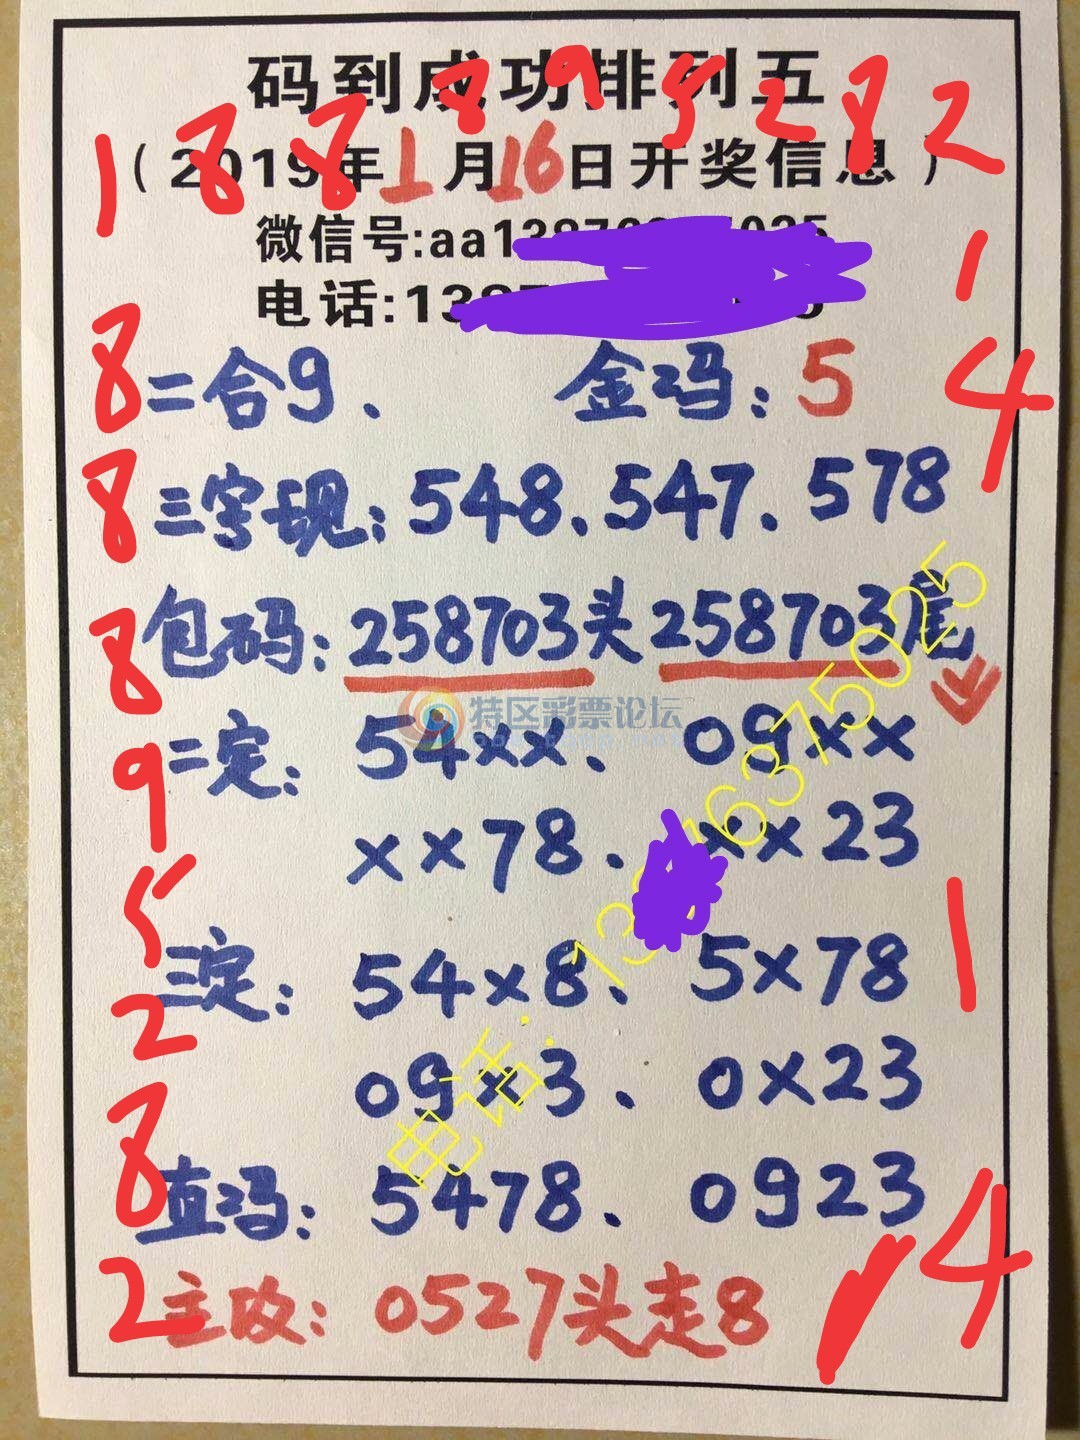 码到成功排列五
1 8 8 8 9 5 2 8 2
（2019年1月16日开奖信息）
微信号:aa1387
电话:13
1
4
8
二合9、 金码：5
8
三字现：548、547、578
8
包码：258703头258703尾
特区彩票论坛
9
二定：54xx、09xx
xx78、xx23
5
1
三定：54x8、5x78
2
09x3、0x23
电话：13 76375025
8
直码：5478、0923
1 4
2
主攻：0527头走8